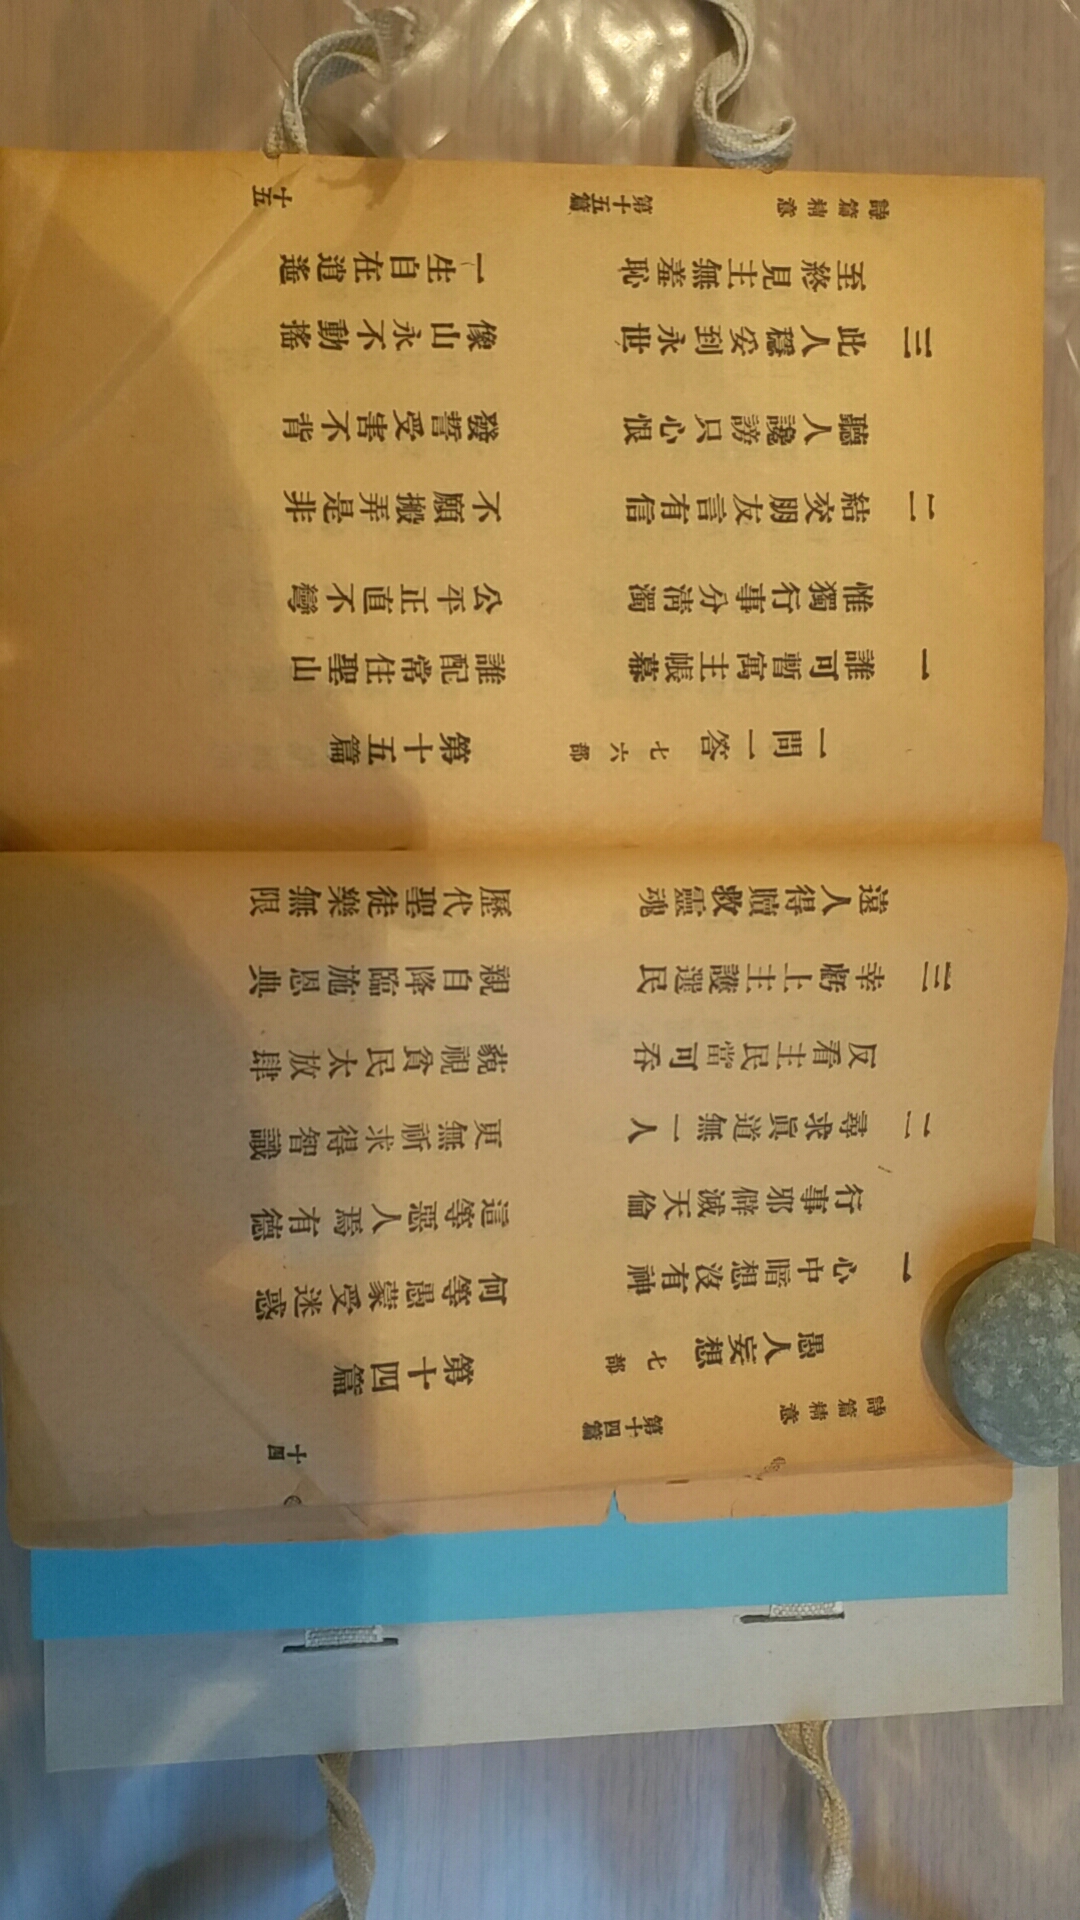 詩篇精意 第十四篇 十四
愚人妄想 七部 第十四篇
一 心中暗想沒有神 何等愚蒙受迷惑
行事邪僻滅天倫 這等惡人焉有德
二 尋求眞道無一人 更無祈求得智識
反看主民當可吞 藐視貧民太放肆
三 幸虧上主護選民 親自降臨施恩典
遠人得贖救靈魂 歷代聖徒樂無限
一問一答 七六部 第十五篇
一 誰可暫寓主帳幕 誰配常住聖山
惟獨行事分清濁 公平正直不彎
二 結交朋友言有信 不願搬弄是非
聽人讒謗只心恨 發誓受害不背
三 此人穩妥到永世 像山永不動搖
至終見主無羞恥 一生自在逍遙
詩篇精意 第十五篇 十五